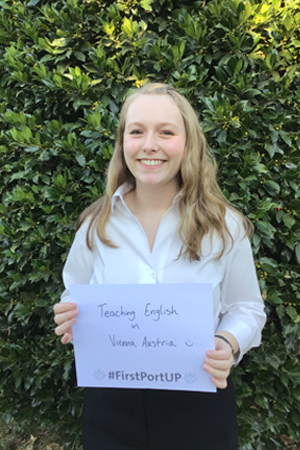 Teaching English
in
Vienna, Austria :)
#FirstPortUP